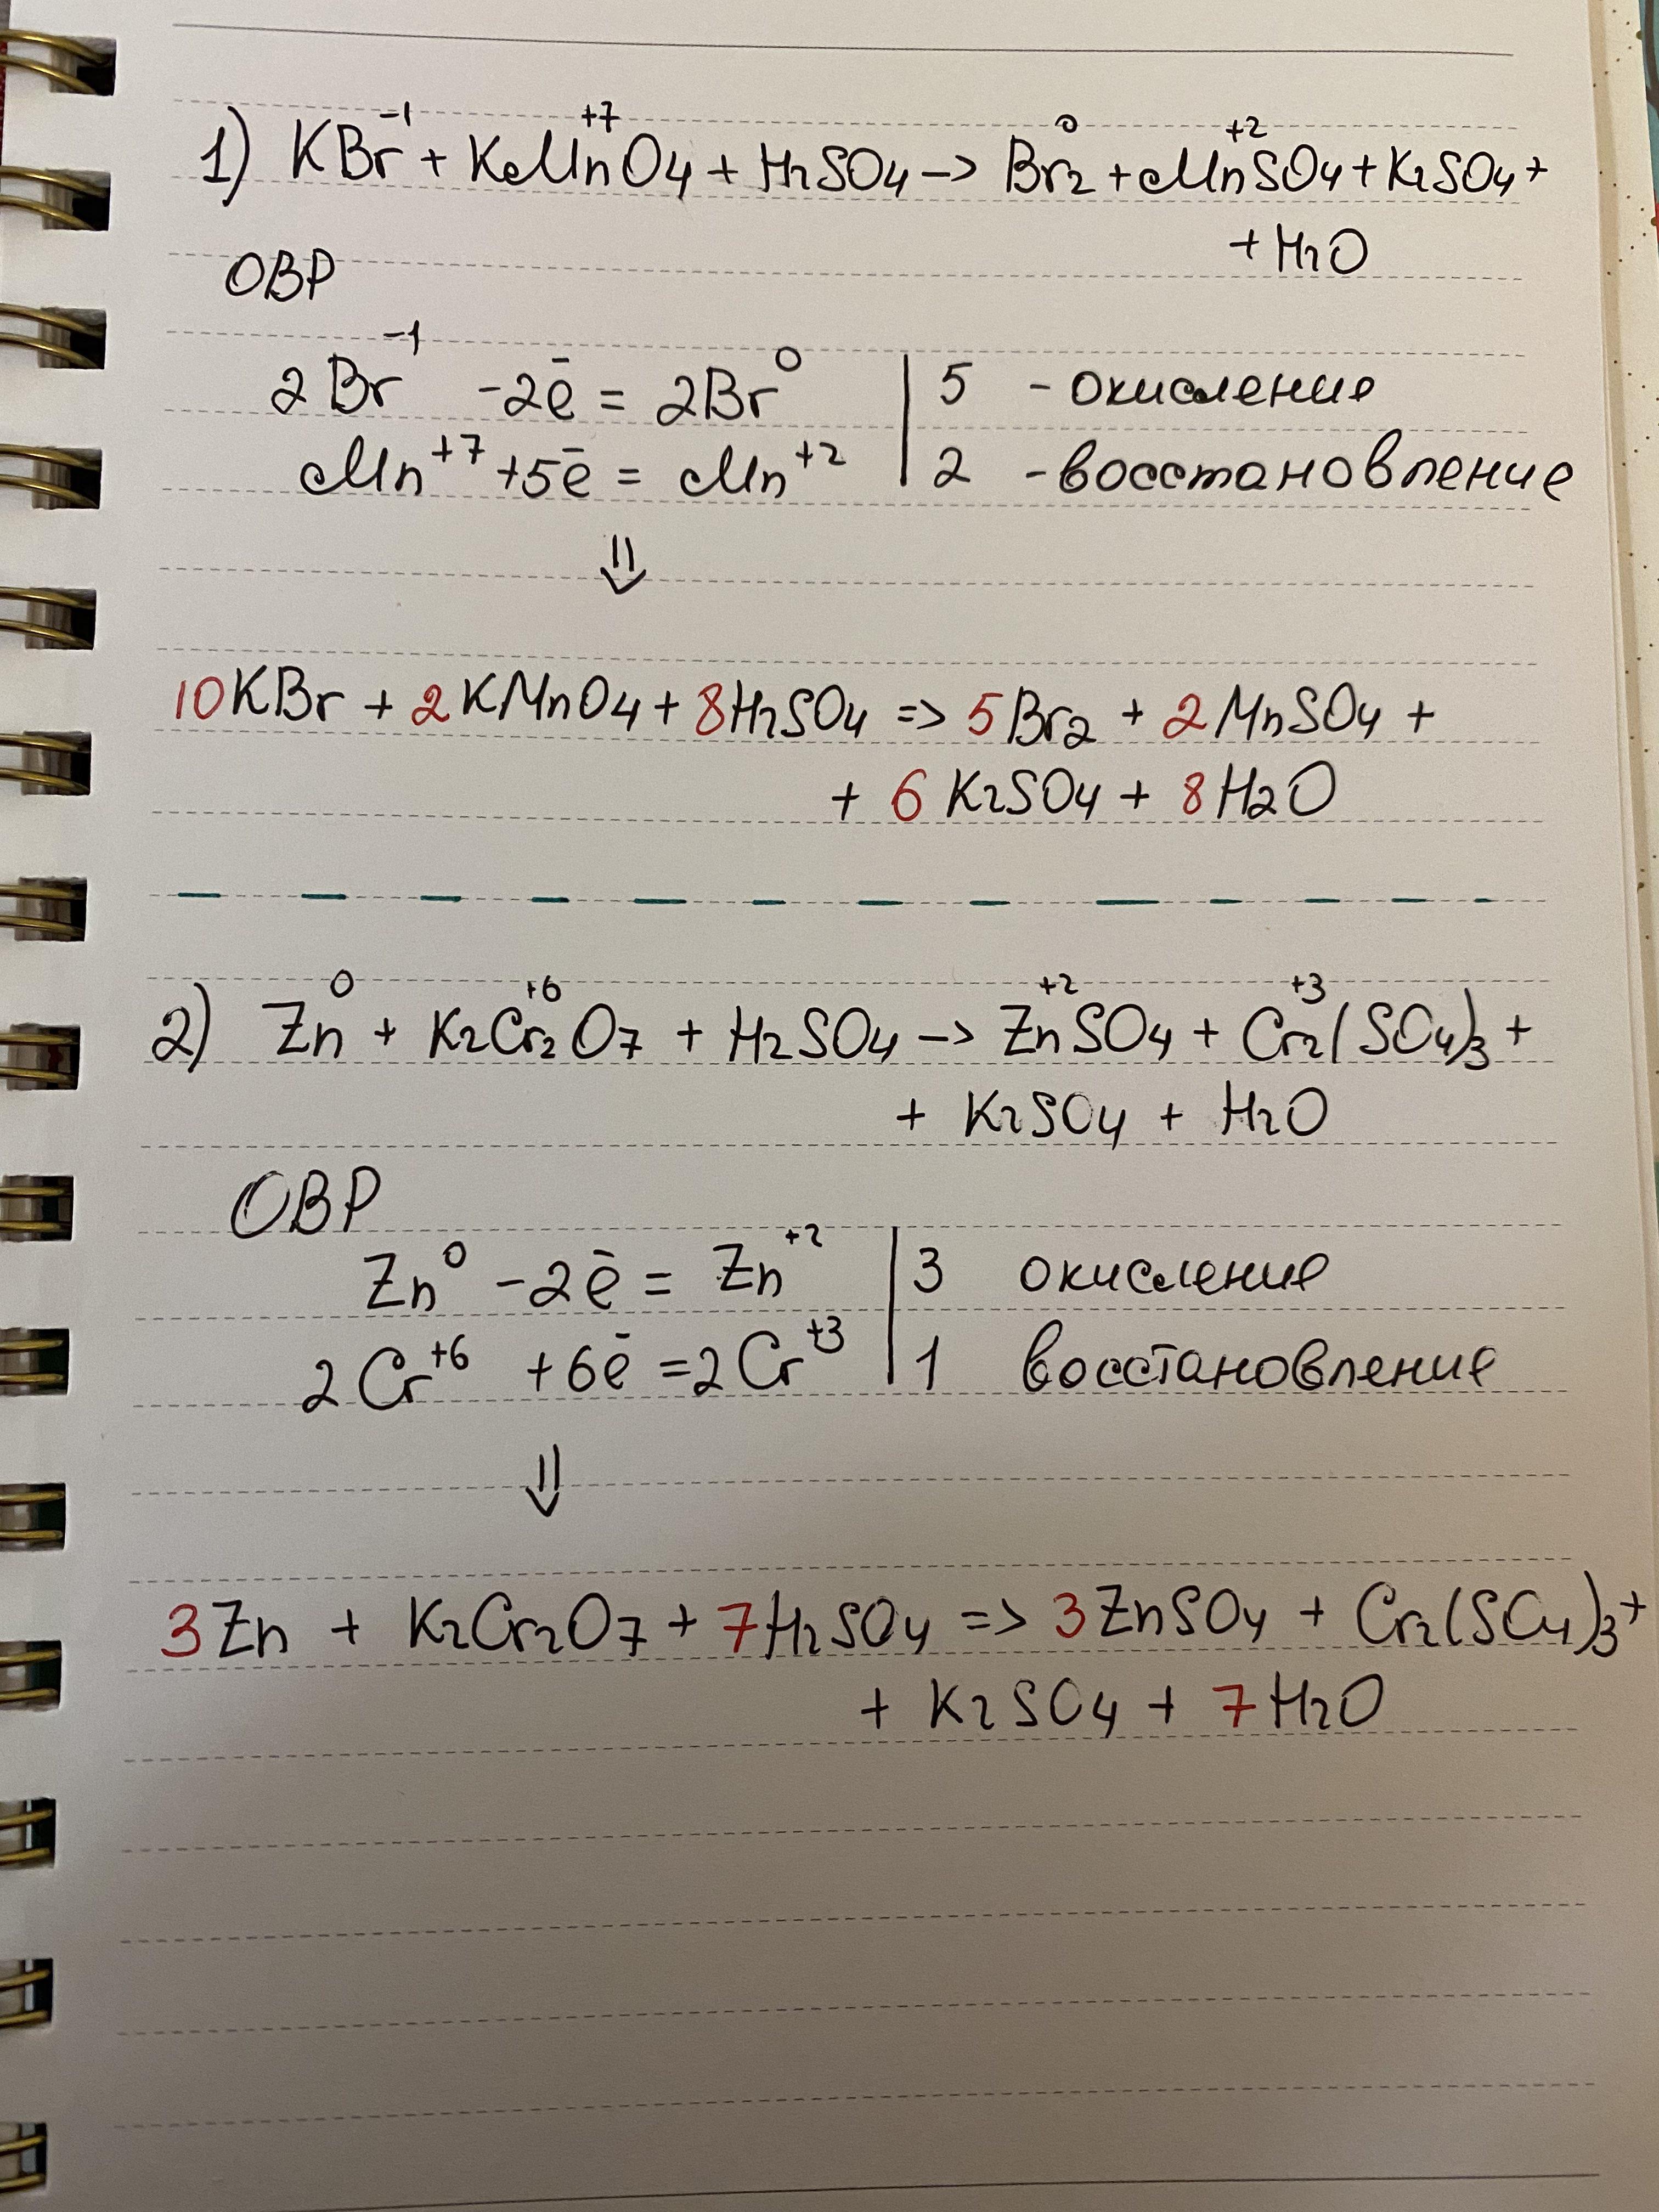 1) KBr⁻¹ + KMn⁺⁷O4 + H2SO4 -> Br2⁰ + Mn⁺²SO4 + K2SO4 +
+ H2O
ОВР
2Br⁻¹ -2ē = 2Br⁰ | 5 - окисление
Mn⁺⁷ +5ē = Mn⁺² | 2 - восстановление
⇓
10KBr + 2KMnO4 + 8H2SO4 => 5Br2 + 2MnSO4 +
+ 6K2SO4 + 8H2O
2) Zn⁰ + K2Cr2⁺⁶O7 + H2SO4 -> Zn⁺²SO4 + Cr2⁺³(SO4)3 +
+ K2SO4 + H2O
ОВР
Zn⁰ -2ē = Zn⁺² | 3 окисление
2Cr⁺⁶ +6ē = 2Cr⁺³ | 1 восстановление
⇓
3Zn + K2Cr2O7 + 7H2SO4 => 3ZnSO4 + Cr2(SO4)3 +
+ K2SO4 + 7H2O